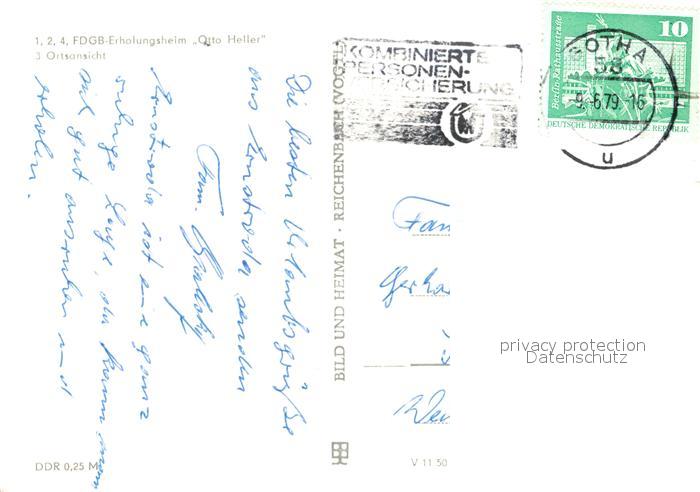 1, 2, 4, FDGB-Erholungsheim „Otto Heller"
3 Ortsansicht
KOMBINIERTE
PERSONEN-
VERSICHERUNG
GOTHA
58
-9.-6.79.-16
u
10
Berlin, Rathausstraße
DEUTSCHE DEMOKRATISCHE REPUBLIK
Die besten Urlaubsgrüße
aus Ernstroda senden
Fam.
Ernstroda ist eine ganz
ruhige Lage, da kann man
sich gut ausruhen und
erholen.
BILD UND HEIMAT · REICHENBACH (VOGTL
Fam
Gerha
privacy protection
Datenschutz
DDR 0,25 M
V 11 50